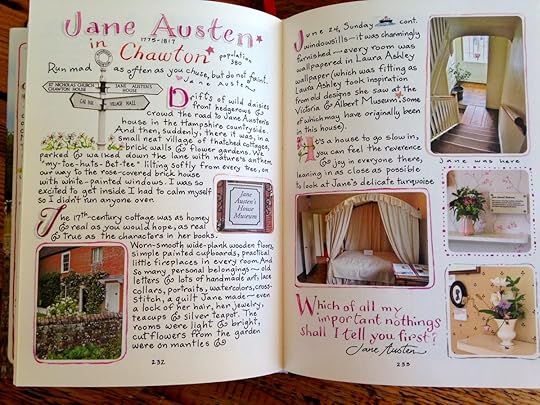 Jane Austen
1775-1817
in Chawton*
population
380
Run mad as often as you chuse, but do not faint.
Jane Austen
ST NICHOLAS CHURCH
CHAWTON HOUSE
JANE AUSTEN'S
HOUSE
CAR PARK
VILLAGE HALL
Drifts of wild daisies
front hedgerows &
crowd the road to Jane Austen's
house in the Hampshire countryside.
And then, suddenly, there it was, in a
small neat village of thatched cottages,
brick walls & flower gardens. We
parked & walked down the lane with nature's anthem,
"my-toe-hurts-Bet-tee" lilting softly from every tree, on
our way to the rose-covered brick house
with white-painted windows. I was so
excited to get inside I had to calm myself
so I didn't run anyone over.
Jane
Austen's
House
Museum
The 17th-century cottage was as homey
& real as you would hope, as real
& true as the characters in her books.
Worn-smooth wide-plank wooden floors,
simple painted cupboards, practical
little fireplaces in every room. And
so many personal belongings — old
letters & lots of handmade art, lace
collars, portraits, watercolors, cross-
stitch, a quilt Jane made — even
a lock of her hair, her jewelry,
teacups & silver teapot. The
rooms were light & bright,
cut flowers from the garden
were on mantles &
232
June 24, Sunday cont.
windowsills — it was charmingly
furnished — every room was
wallpapered in Laura Ashley
wallpaper (which was fitting as
Laura Ashley took inspiration
from old designs she saw at the
Victoria & Albert Museum. Some
of which may have originally been
in this house).
It's a house to go slow in,
you can feel the reverence
& joy in everyone there,
leaning in as close as possible
to look at Jane's delicate turquoise
Jane was here.
Which of all my
important nothings
shall I tell you first?
Jane Austen
233